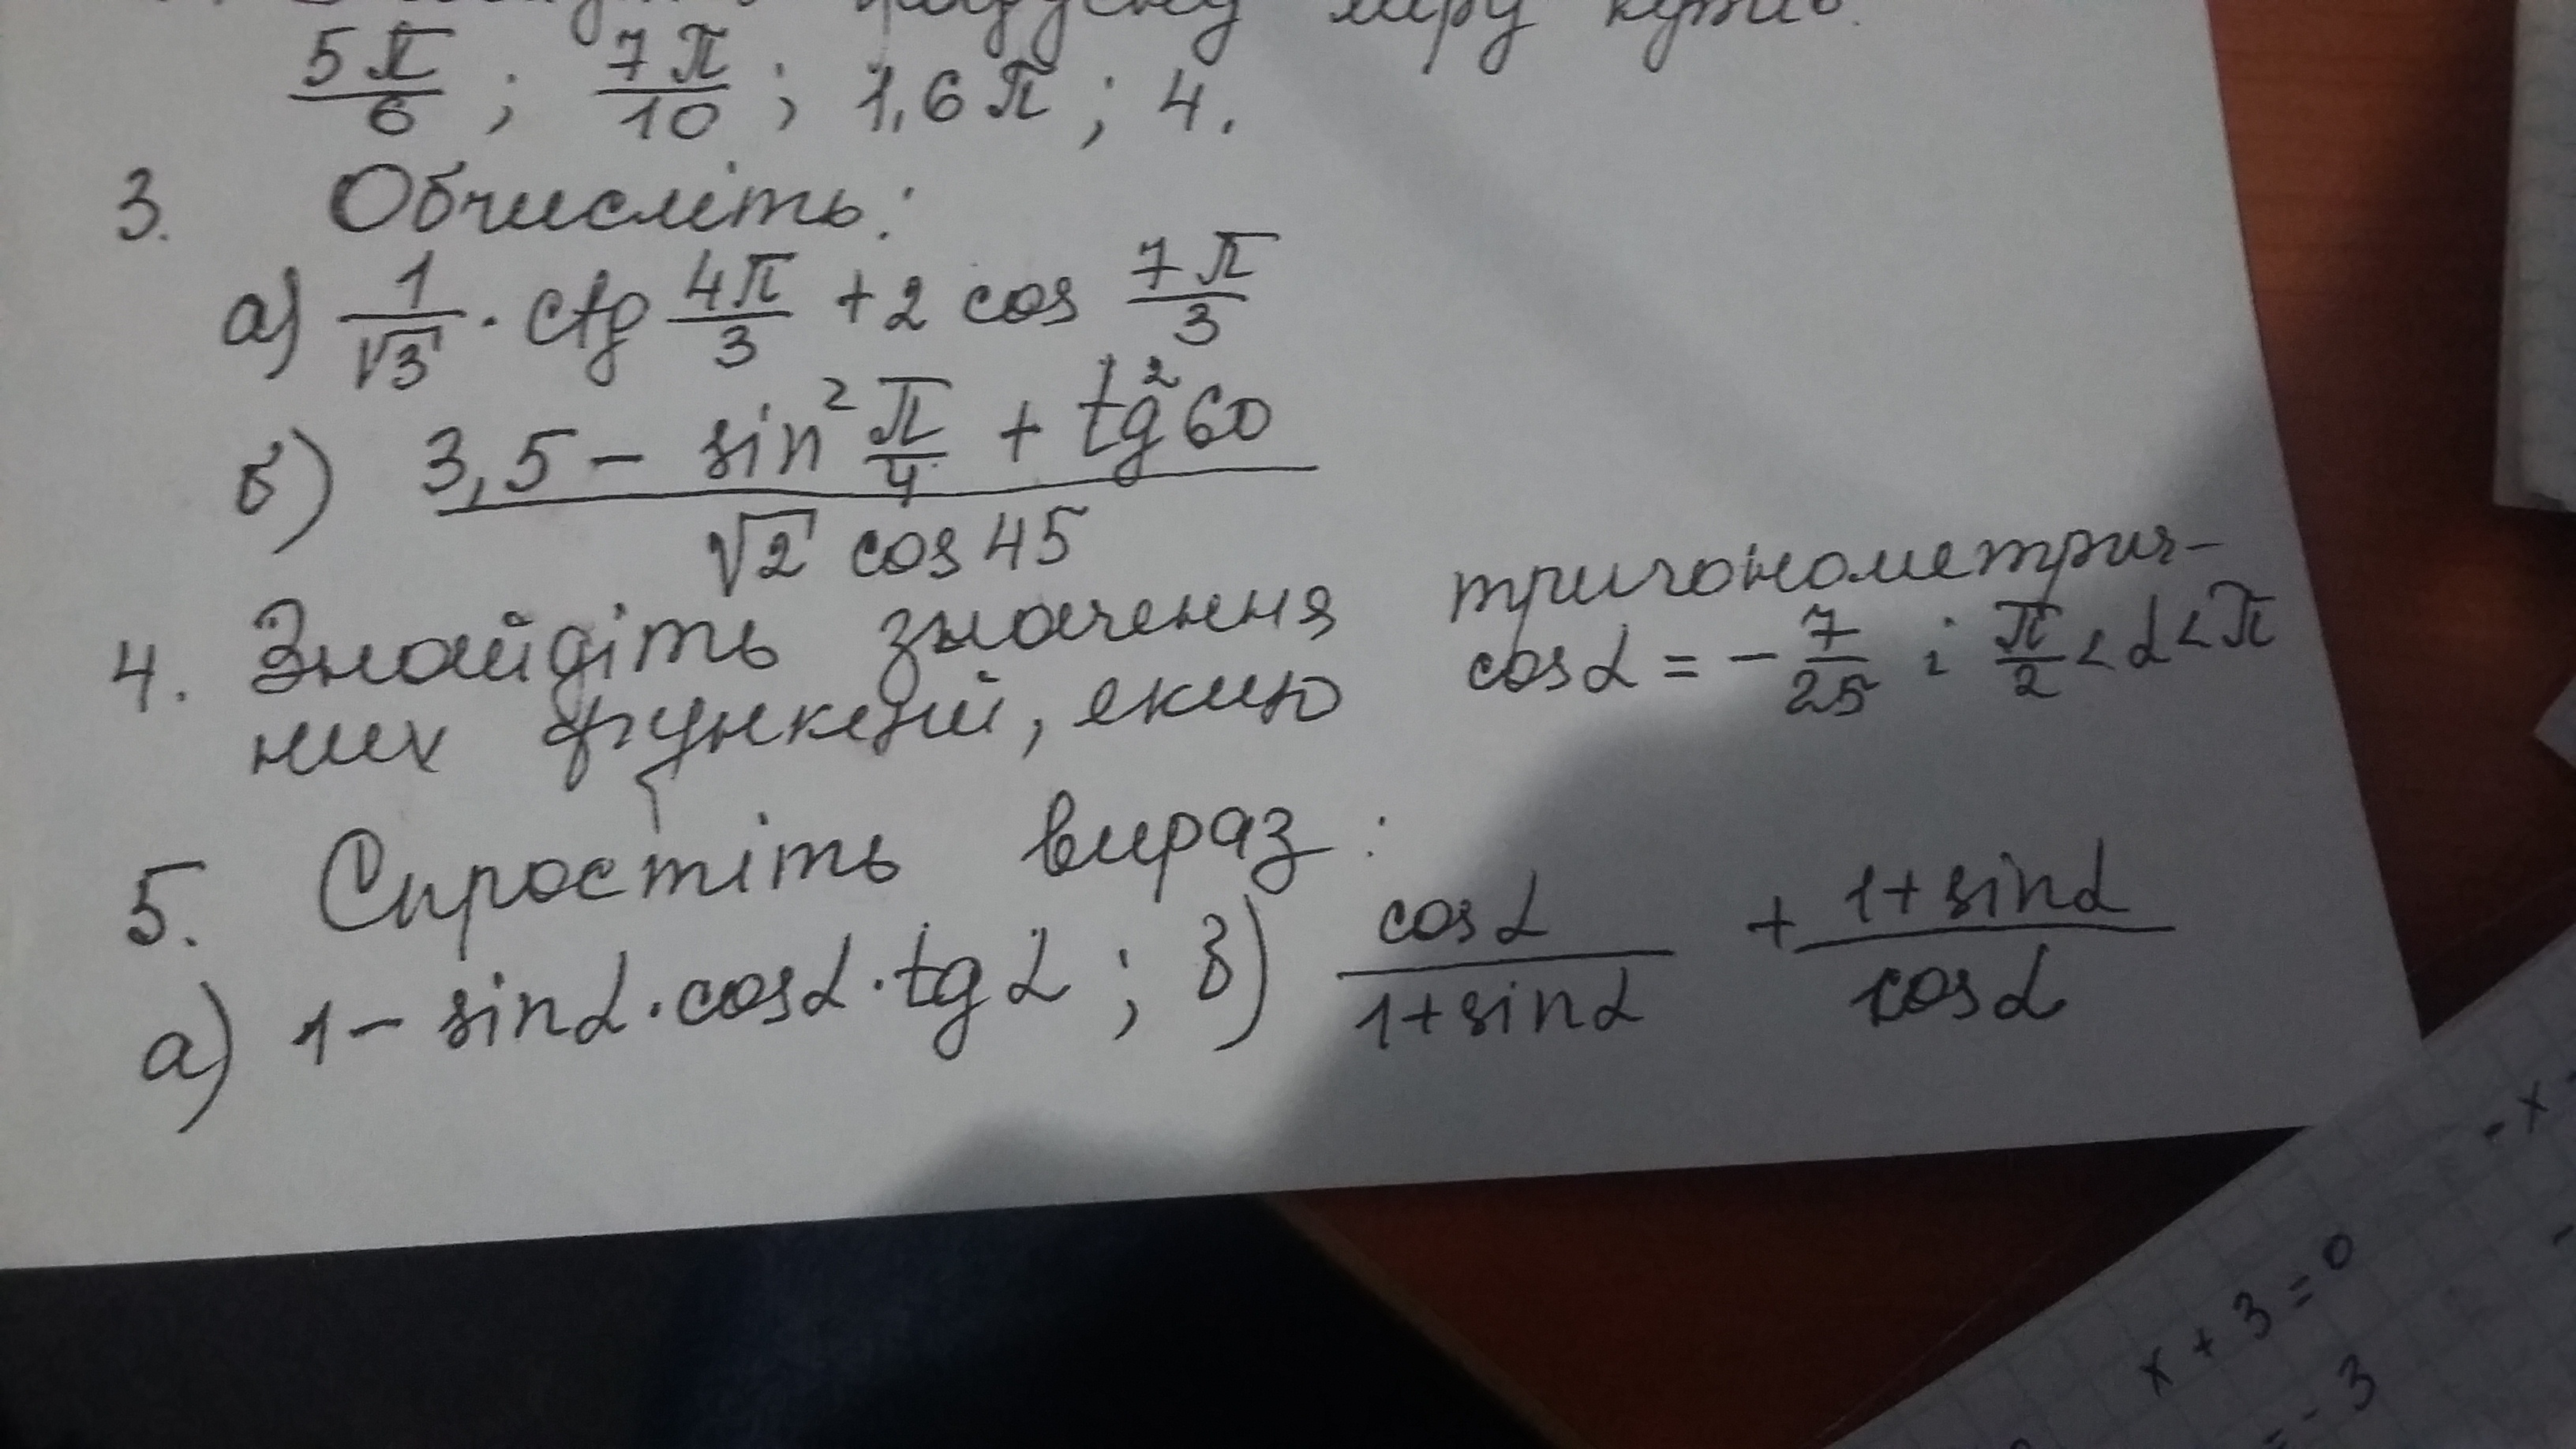 градусну міру кутів.
5π/6 ; 7π/10 ; 1,6π ; 4.
3. Обчисліть:
а) 1/√3 · ctg 4π/3 + 2 cos 7π/3
б) (3,5 − sin² π/4 + tg² 60) / (√2 cos 45)
4. Знайдіть значення тригонометрич-
них функцій, якщо cos α = −7/25 і π/2 < α < π
5. Спростіть вираз:
а) 1 − sin α · cos α · tg α ; в) cos α / (1 + sin α) + (1 + sin α) / cos α
- x
x + 3 = 0
= - 3